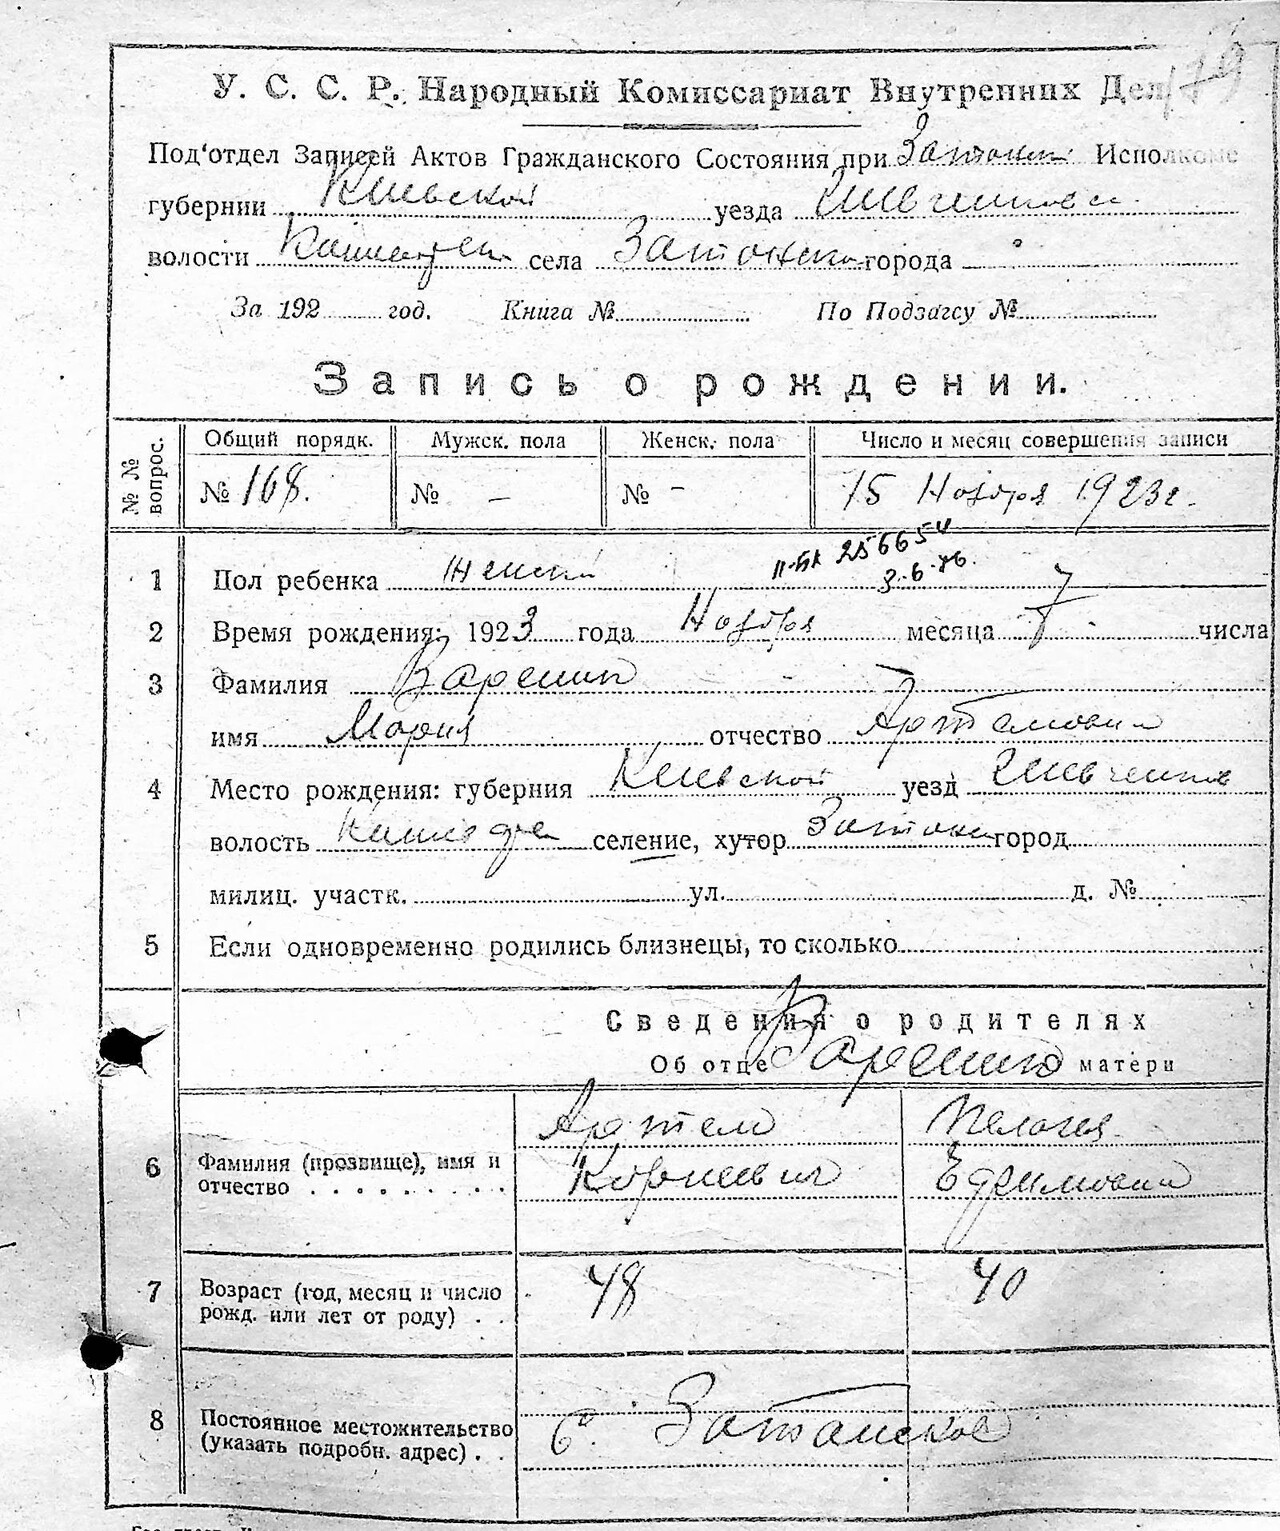 179
У. С. С. Р. Народный Комиссариат Внутренних Дел
Под'отдел Записей Актов Гражданского Состояния при Затонск Исполкоме
губернии Киевской уезда Шевченков
волости села Затонско города
За 192 год. Книга № По Подзагсу №
Запись о рождении.
№ № вопрос. Общий порядк. Мужск. пола Женск. пола Число и месяц совершения записи
№ 168. № - № - 15 Ноября 1923 г.
п-бк 256654
3-6-76.
1 Пол ребенка женский
2 Время рождения: 1923 года Ноября месяца 7 числа
3 Фамилия
имя Мария отчество Артемовна
4 Место рождения: губерния Киевской уезд Шевченков
волость селение, хутор Затонск город
милиц. участк. ул. д. №
5 Если одновременно родились близнецы, то сколько
Сведения о родителях
Об отце матери
6 Фамилия (прозвище), имя и отчество Артем Корнеевич Пелагея Ефимовна
7 Возраст (год, месяц и число рожд. или лет от роду) 48 40
8 Постоянное местожительство (указать подробн. адрес) Затонское